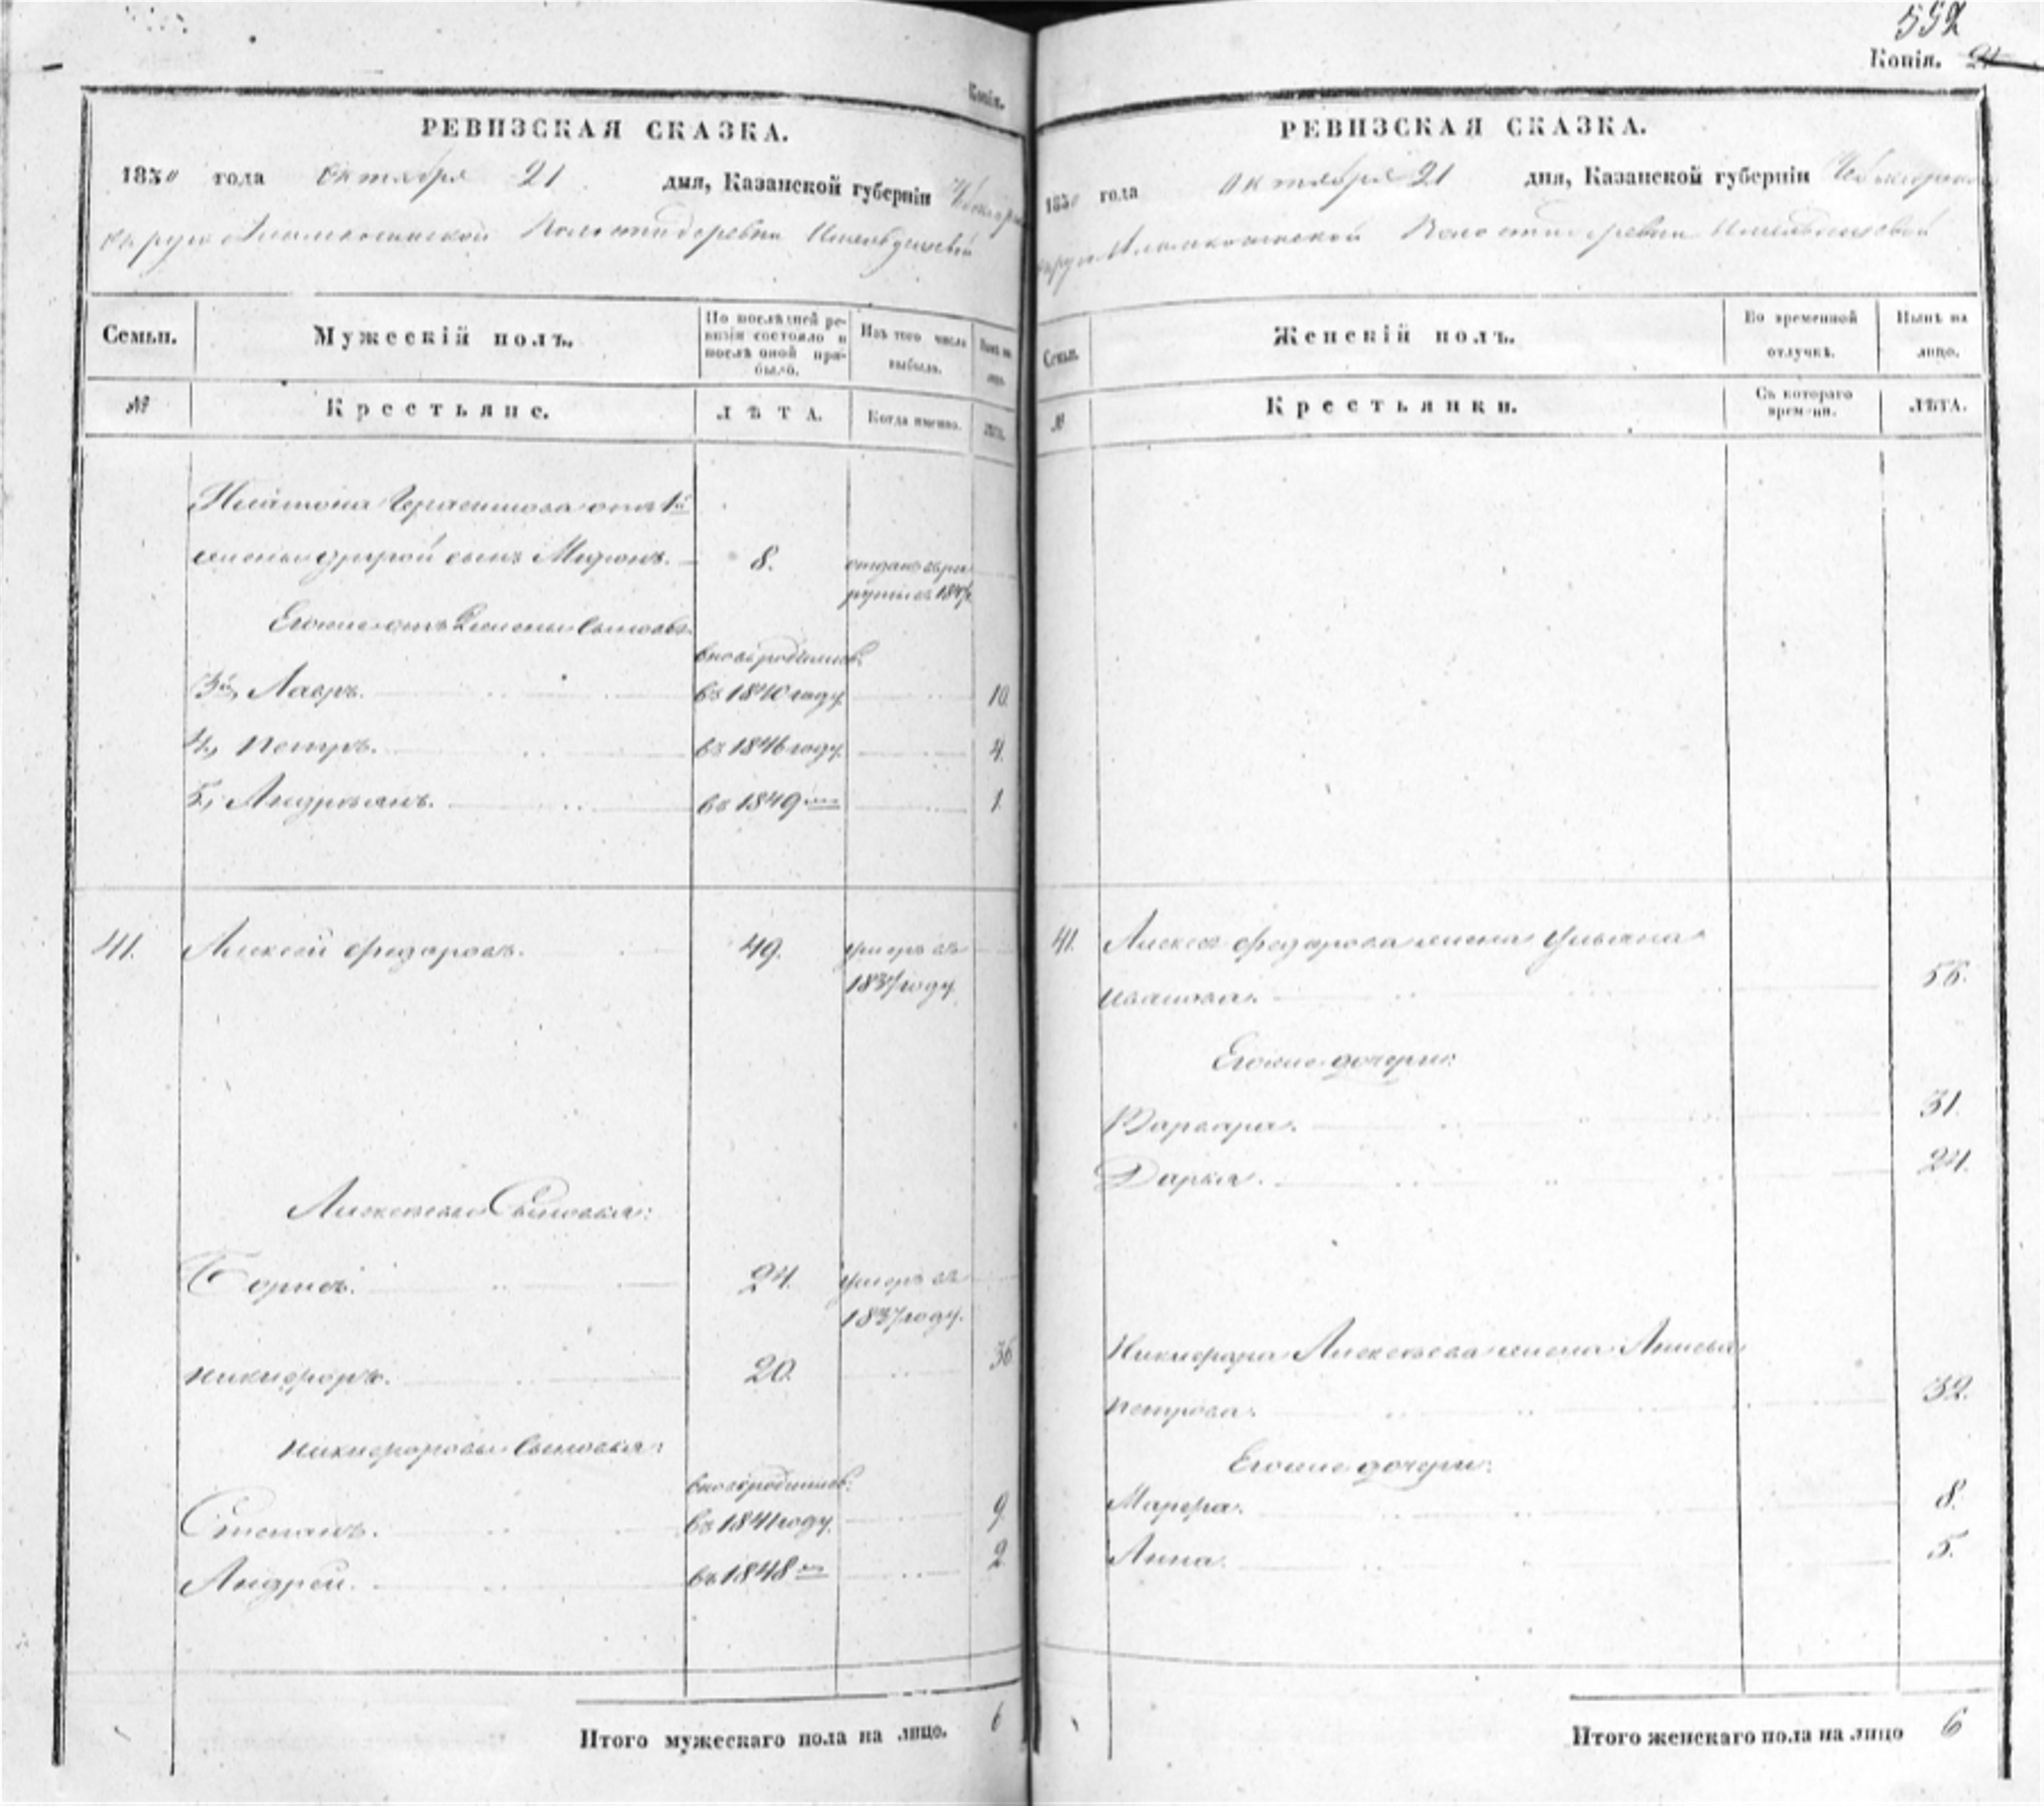 Копія.
РЕВИЗСКАЯ СКАЗКА.
1850 года Октября 21 дня, Казанской губерніи
Волости деревни
Семьи. Мужескій полъ. По послѣдней ревизіи состояло и послѣ оной прибыло. Изъ того числа выбыло. Нынѣ на лицо.
№ Крестьяне. ЛѢТА. Когда именно. Лѣта.
другой сынъ Миронъ. 8. отданъ въ рекруты въ 184
Егоже отъ 2 жены сыновья
вновь родились:
3й, Лавръ. въ 1840 году. 10.
4, Петръ. въ 1846 году. 4.
5, Андреянъ. въ 1849 1.
41. Алексей Федоровъ. 49. умеръ въ
1837 году.
Алексеевы Сыновья:
Борисъ. 24. умеръ въ
1837 году.
Никифоръ. 20. 36
Никифоровы Сыновья:
вновь родились:
Степанъ. въ 1841 году. 9.
Андрей. въ 1848 2.
Итого мужескаго пола на лицо. 6
552
Копія.
РЕВИЗСКАЯ СКАЗКА.
1850 года Октября 21 дня, Казанской губерніи
Волости деревни
Семьи. Женскій полъ. Во временной отлучкѣ. Нынѣ на лицо.
№ Крестьянки. Съ котораго времени. ЛѢТА.
41. Алексея Федорова жена Ульяна
Иванова. 56.
Егоже дочери:
Варвара. 31.
Дарья. 24.
Никифора Алексеева жена
Петрова. 32.
Егоже дочери:
Марфа. 8.
Анна. 5.
Итого женскаго пола на лицо 6